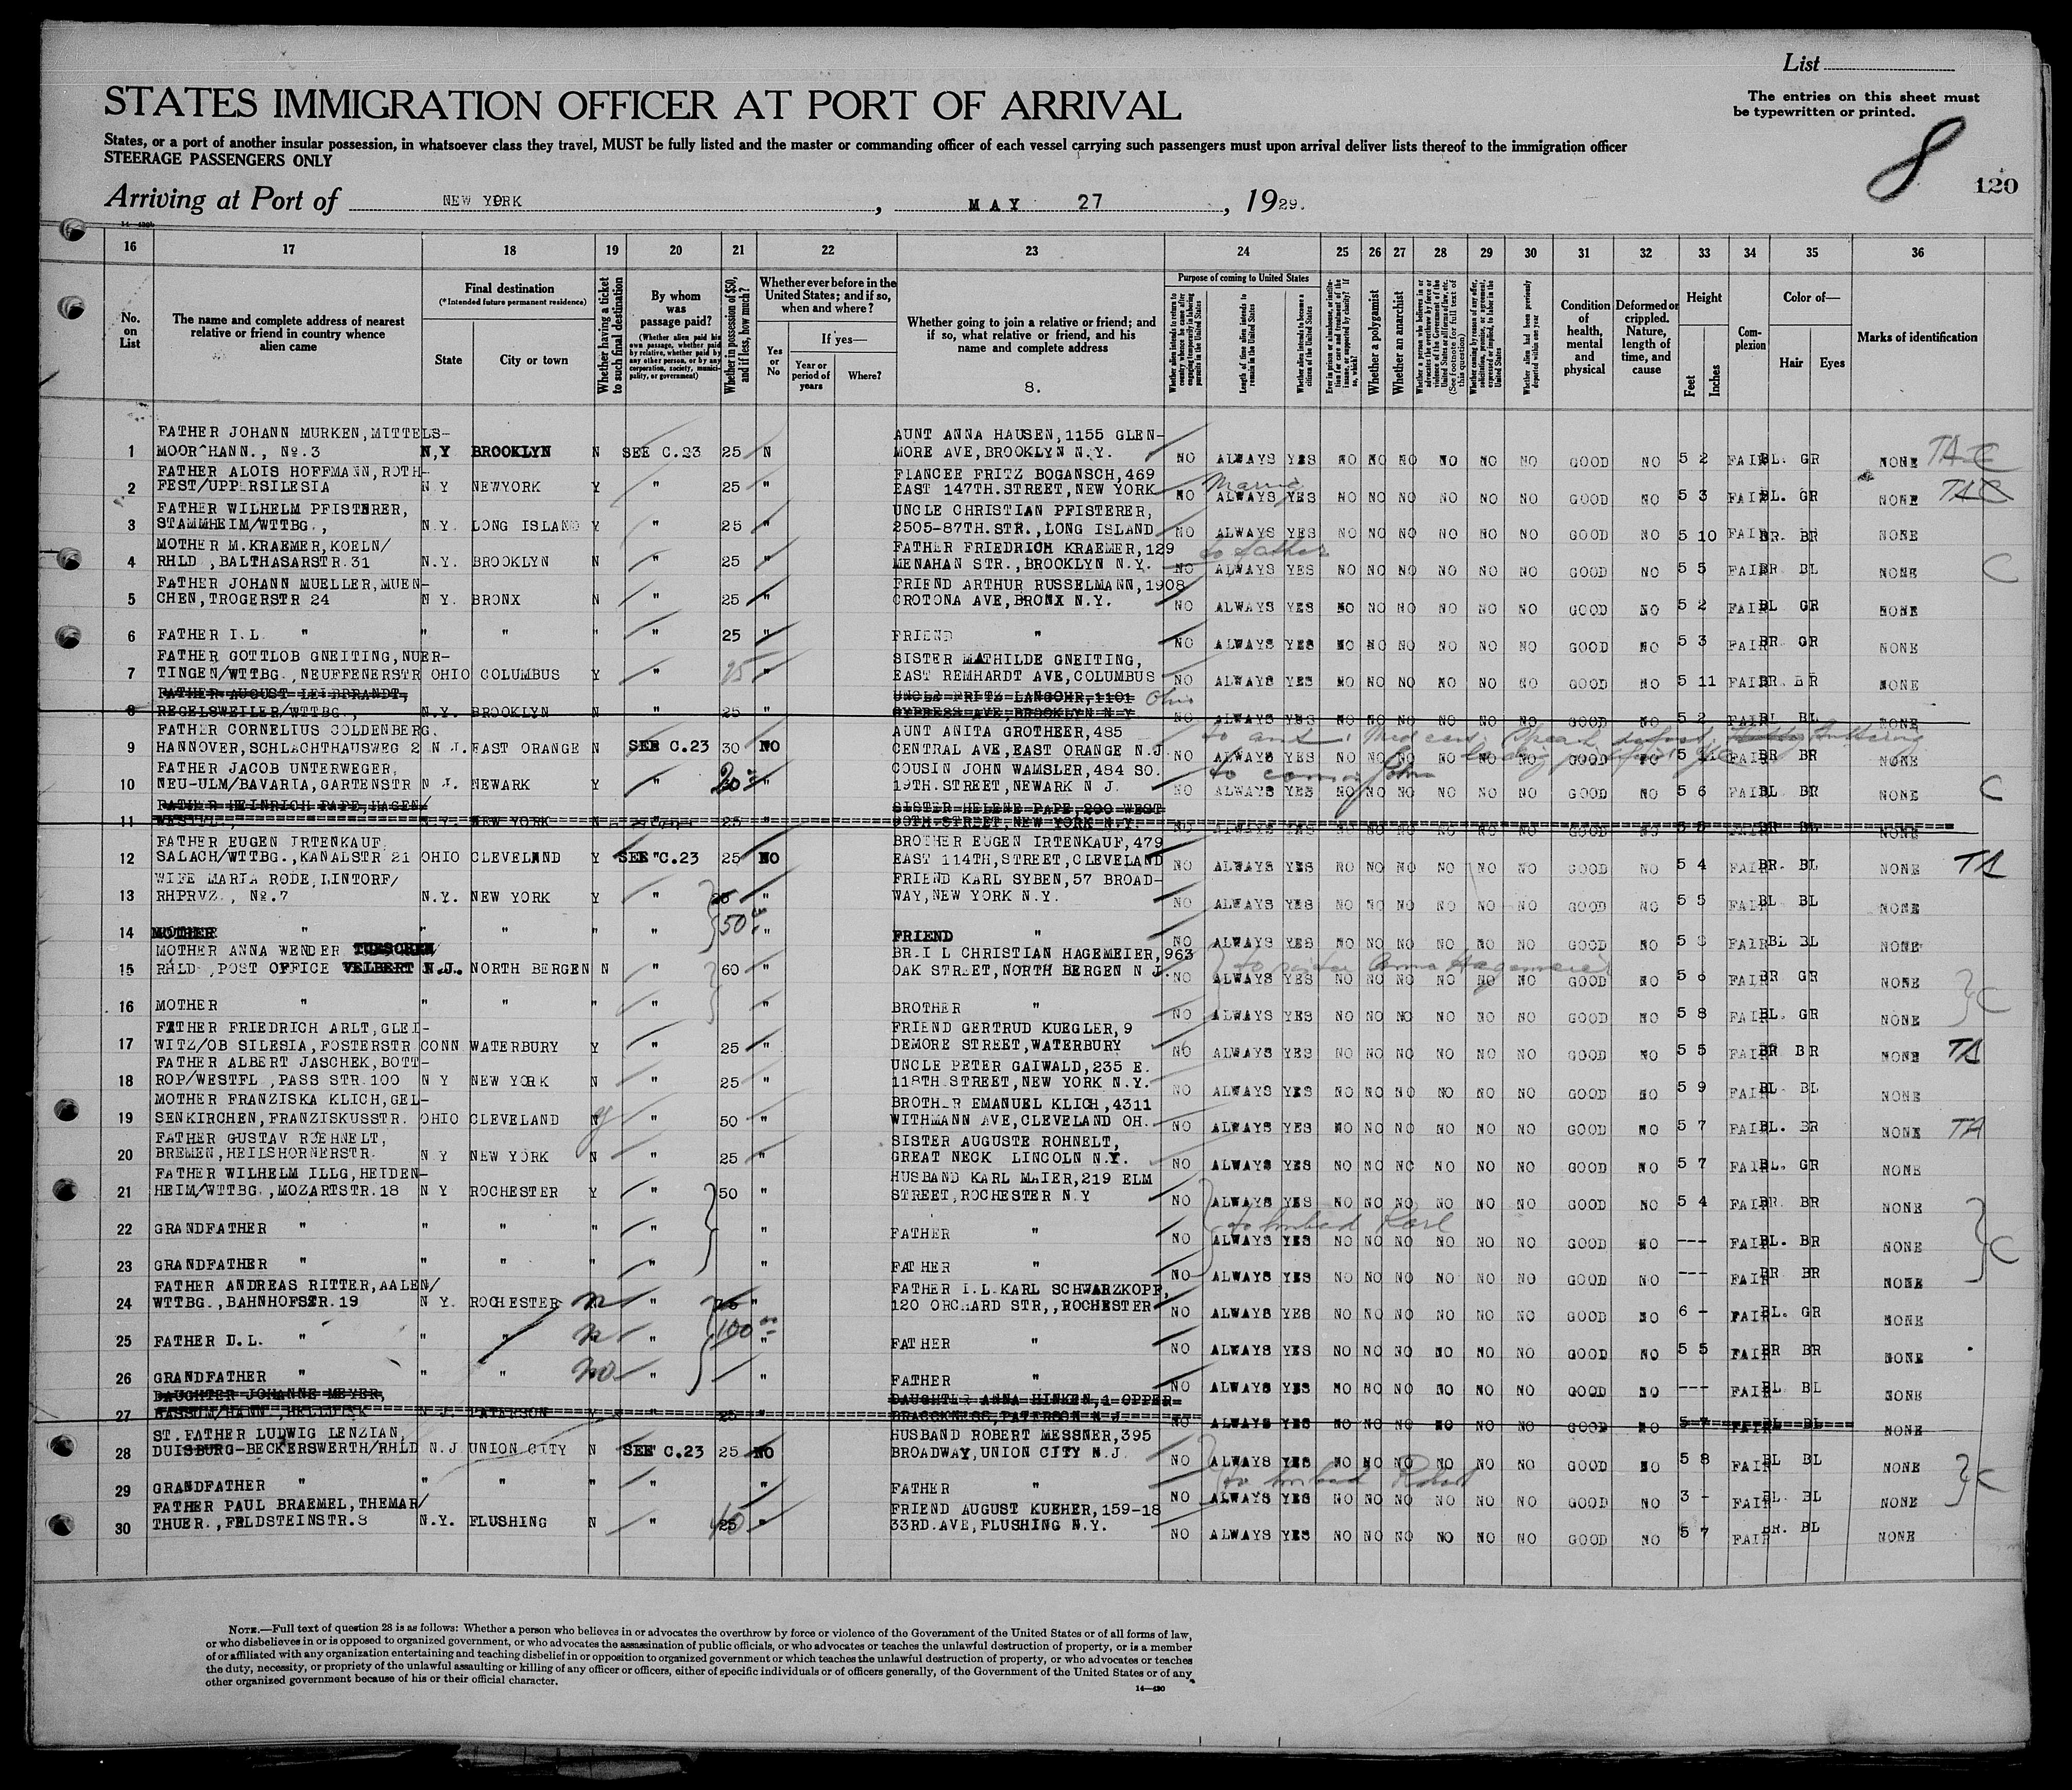 List
The entries on this sheet must
be typewritten or printed.
STATES IMMIGRATION OFFICER AT PORT OF ARRIVAL
8
120
States, or a port of another insular possession, in whatsoever class they travel, MUST be fully listed and the master or commanding officer of each vessel carrying such passengers must upon arrival deliver lists thereof to the immigration officer
STEERAGE PASSENGERS ONLY
Arriving at Port of NEW YORK, MAY 27, 1929.
16 17 18 19 20 21 22 23 24 25 26 27 28 29 30 31 32 33 34 35 36
No. on List
The name and complete address of nearest relative or friend in country whence alien came
Final destination
(*Intended future permanent residence)
State
City or town
Whether having a ticket to such final destination
By whom was passage paid?
(Whether alien paid his own passage, whether paid by relative, whether paid by any other person, or by any corporation, society, municipality, or government)
Whether in possession of $50, and if less, how much?
Whether ever before in the United States; and if so, when and where?
Yes or No
If yes—
Year or period of years
Where?
Whether going to join a relative or friend; and if so, what relative or friend, and his name and complete address
8.
Purpose of coming to United States
Length of time alien intends to remain in the United States
Whether alien intends to become a citizen of the United States
Whether a polygamist
Whether an anarchist
Condition of health, mental and physical
Deformed or crippled. Nature, length of time, and cause
Height
Feet
Inches
Complexion
Color of—
Hair
Eyes
Marks of identification
FATHER JOHANN MURKEN, MITTELS- AUNT ANNA HAUSEN, 1155 GLEN-
1 MOOR HANN., No.3 N,Y BROOKLYN N SEE C.23 25 N MORE AVE, BROOKLYN N.Y. NO ALWAYS YES NO NO NO NO NO NO GOOD NO 5 2 FAIR BL. GR NONE
FATHER ALOIS HOFFMANN, ROTH- FIANCEE FRITZ BOGANSCH, 469
2 FEST/UPPERSILESIA N Y NEWYORK Y " 25 " EAST 147TH.STREET, NEW YORK NO ALWAYS YES NO NO NO NO NO NO GOOD NO 5 3 FAIR BL. GR NONE
FATHER WILHELM PFISTERER, UNCLE CHRISTIAN PFISTERER,
3 STAMMHEIM/WTTBG., N.Y. LONG ISLAND Y " 25 " 2505-87TH.STR., LONG ISLAND NO ALWAYS YES NO NO NO NO NO NO GOOD NO 5 10 FAIR BR. BR NONE
MOTHER M.KRAEMER, KOELN/ FATHER FRIEDRICH KRAEMER, 129 to father
4 RHLD., BALTHASARSTR.31 N.Y. BROOKLYN N " 25 " MENAHAN STR., BROOKLYN N.Y. NO ALWAYS YES NO NO NO NO NO NO GOOD NO 5 5 FAIR BR BL NONE C
FATHER JOHANN MUELLER, MUEN- FRIEND ARTHUR RUSSELMANN, 1908
5 CHEN, TROGERSTR 24 N Y. BRONX N " 25 " CROTONA AVE, BRONX N.Y. NO ALWAYS YES NO NO NO NO NO NO GOOD NO 5 2 FAIR BL GR NONE
6 FATHER I.L. " " " " " 25 " FRIEND " NO ALWAYS YES NO NO NO NO NO NO GOOD NO 5 3 FAIR BR. GR NONE
FATHER GOTTLOB GNEITING, NUER- SISTER MATHILDE GNEITING,
7 TINGEN/WTTBG., NEUFFENERSTR OHIO COLUMBUS Y " " EAST REMHARDT AVE, COLUMBUS NO ALWAYS YES NO NO NO NO NO NO GOOD NO 5 11 FAIR BR. BR NONE
FATHER AUGUST LEIBBRANDT, UNCLE FRITZ LANGOHR, 1101 Ohio
8 REGELSWEILER/WTTBG., N.Y. BROOKLYN N " 25 " CYPRESS AVE, BROOKLYN N Y NO ALWAYS YES NO NO NO NO NO NO GOOD NO 5 2 FAIR BL BL NONE
FATHER CORNELIUS COLDENBERG, AUNT ANITA GROTHEER, 485
9 HANNOVER, SCHLACHTHAUSWEG 2 N J. EAST ORANGE N SEE C.23 30 NO CENTRAL AVE, EAST ORANGE N.J NO ALWAYS YES NO NO NO GOOD NO BR BR NONE
FATHER JACOB UNTERWEGER, COUSIN JOHN WAMSLER, 484 SO. to cousin John
10 NEU-ULM/BAVARIA, GARTENSTR N J. NEWARK Y " " 19TH.STREET, NEWARK N J. NO ALWAYS YES NO NO NO NO NO NO GOOD NO 5 6 FAIR BL BR NONE C
FATHER HEINRICH PAPE, HAGEN/ SISTER HELENE PAPE 200 WEST
11 N.Y. NEW YORK N 25 STREET, NEW YORK N.Y. NONE
FATHER EUGEN IRTENKAUF BROTHER EUGEN IRTENKAUF, 479
12 SALACH/WTTBG., KANALSTR 21 OHIO CLEVELAND Y SEE C.23 25 NO EAST 114TH, STREET, CLEVELAND NO ALWAYS YES NO NO NO NO NO NO GOOD NO 5 4 FAIR BR. BL NONE TA
WIFE MARIA RODE, LINTORF/ FRIEND KARL SYBEN, 57 BROAD-
13 RHPRVZ., No.7 N.Y. NEW YORK Y " " WAY, NEW YORK N.Y. NO ALWAYS YES NO NO NO NO NO NO GOOD NO 5 5 FAIR BL BL NONE
14 MOTHER " " " " " 50 " FRIEND " NO ALWAYS YES NO NO NO NO NO NO GOOD NO FAIR BL BL NONE
MOTHER ANNA WENDER BR.I L CHRISTIAN HAGEMEIER, 963
15 RHLD., POST OFFICE VELBERT N.J. NORTH BERGEN N " 60 " OAK STREET, NORTH BERGEN N J. to sister Anna Hagemeier NO ALWAYS YES NO NO NO NO NO NO GOOD NO 5 6 FAIR BR GR NONE
16 MOTHER " " " " " " BROTHER " NO ALWAYS YES NO NO NO NO NO NO GOOD NO 5 8 FAIR BL. GR NONE C
FATHER FRIEDRICH ARLT, GLEI- FRIEND GERTRUD KUEGLER, 9
17 WITZ/OB SILESIA, FOSTERSTR CONN WATERBURY Y " 25 " DEMORE STREET, WATERBURY NO ALWAYS YES NO NO NO NO NO NO GOOD NO 5 5 FAIR BR BR NONE TA
FATHER ALBERT JASCHEK, BOTT- UNCLE PETER GAIWALD, 235 E.
18 ROP/WESTFL., PASS STR.100 N Y NEW YORK N " 25 " 118TH.STREET, NEW YORK N.Y. NO ALWAYS YES NO NO NO NO NO NO GOOD NO 5 9 FAIR BL. BL NONE
MOTHER FRANZISKA KLICH, GEL- BROTHER EMANUEL KLICH, 4311
19 SENKIRCHEN, FRANZISKUSSTR. OHIO CLEVELAND y " 50 " WITHMANN AVE, CLEVELAND OH. NO ALWAYS YES NO NO NO NO NO NO GOOD NO 5 7 FAIR BL. BR NONE TA
FATHER GUSTAV ROEHNELT, SISTER AUGUSTE ROHNELT,
20 BREMEN, HEILSHORNERSTR. N Y NEW YORK N " 25 " GREAT NECK LINCOLN N.Y. NO ALWAYS YES NO NO NO NO NO NO GOOD NO 5 7 FAIR BL. GR NONE
FATHER WILHELM ILLG, HEIDEN- HUSBAND KARL MAIER, 219 ELM
21 HEIM/WTTBG., MOZARTSTR.18 N Y ROCHESTER Y " 50 " STREET, ROCHESTER N.Y NO ALWAYS YES NO NO NO NO NO NO GOOD NO 5 4 FAIR BR. BR NONE
22 GRANDFATHER " " " " " " FATHER " to husband Karl NO ALWAYS YES NO NO NO NO NO NO GOOD NO --- FAIR BL. BR NONE
23 GRANDFATHER " " " " " " FATHER " NO ALWAYS YES NO NO NO NO NO NO GOOD NO --- FAIR BR BR NONE C
FATHER ANDREAS RITTER, AALEN/ FATHER I.L.KARL SCHWARZKOPF,
24 WTTBG., BAHNHOFSTR.19 N Y. ROCHESTER n " " 120 ORCHARD STR,, ROCHESTER NO ALWAYS YES NO NO NO NO NO NO GOOD NO 6 - FAIR BL. GR NONE
25 FATHER D.L. " " " n " 100 " FATHER " NO ALWAYS YES NO NO NO NO NO NO GOOD NO 5 5 FAIR BR BR NONE
26 GRANDFATHER " " " no " " FATHER " NO ALWAYS YES NO NO NO NO NO NO GOOD NO --- FAIR BL BL NONE
DAUGHTER JOHANNE MEYER, DAUGHTER ANNA HINKEN, 1 OPPER-
27 BASSUM/HANN., N J. PATERSON Y " 25 " PATERSON N J NO ALWAYS YES NO NO NO NO NO NO GOOD NO FAIR BL BL NONE
ST.FATHER LUDWIG LENZIAN, HUSBAND ROBERT MESSNER, 395
28 DUISBURG-BECKERSWERTH/RHLD N.J UNION CITY N SEE C.23 25 NO BROADWAY, UNION CITY N.J. NO ALWAYS YES NO NO NO NO NO NO GOOD NO 5 8 FAIR BL BL NONE
29 GRANDFATHER " " " " " " FATHER " to husband Robert NO ALWAYS YES NO NO NO NO NO NO GOOD NO 3 - FAIR BL. BL NONE C
FATHER PAUL BRAEMEL, THEMAR/ FRIEND AUGUST KUEHER, 159-18
30 THUER., FELDSTEINSTR.8 N.Y. FLUSHING N " " 33RD.AVE, FLUSHING N.Y. NO ALWAYS YES NO NO NO NO NO NO GOOD NO 5 7 FAIR BR. BL NONE
NOTE.—Full text of question 28 is as follows: Whether a person who believes in or advocates the overthrow by force or violence of the Government of the United States or of all forms of law,
or who disbelieves in or is opposed to organized government, or who advocates the assassination of public officials, or who advocates or teaches the unlawful destruction of property, or is a member
of or affiliated with any organization entertaining and teaching disbelief in or opposition to organized government or which teaches the unlawful destruction of property, or who advocates or teaches
the duty, necessity, or propriety of the unlawful assaulting or killing of any officer or officers, either of specific individuals or of officers generally, of the Government of the United States or of any
other organized government because of his or their official character.
14—430